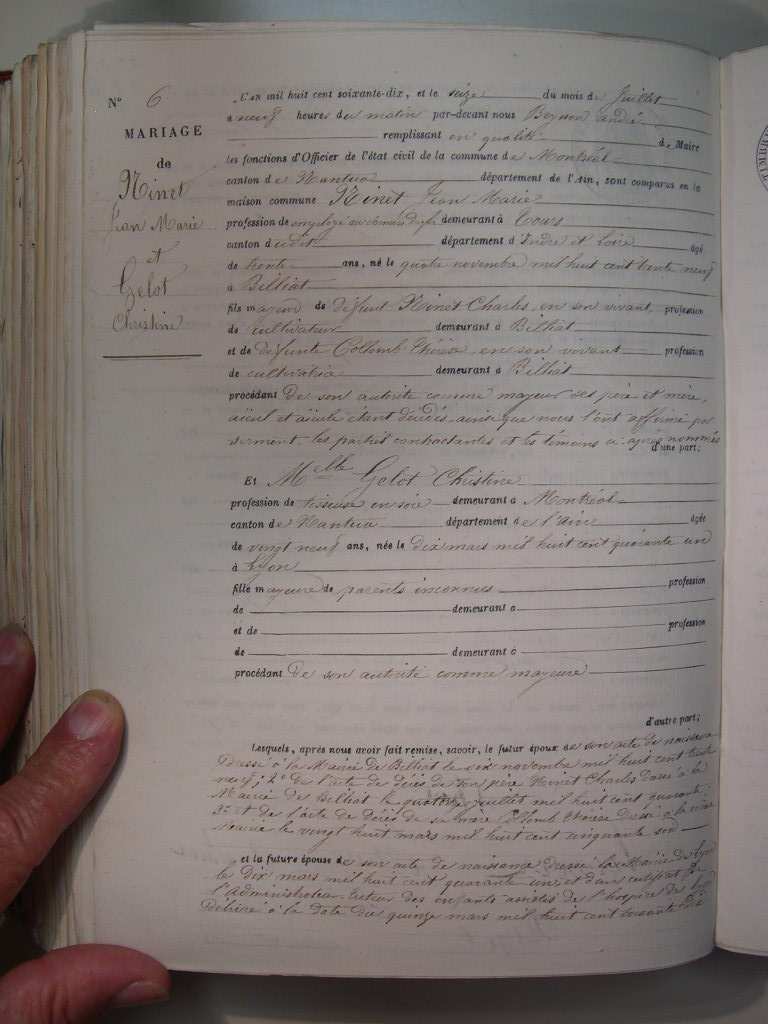 N° 6
MARIAGE
de
Ninet
Jean Marie
et
Gelot
Christine
L'an mil huit cent soixante-dix, et le seize du mois de Juillet
à neuf heures du matin par-devant nous andré
remplissant en qualité de Maire
les fonctions d'Officier de l'état civil de la commune de Montréal
canton de Nantua département de l'Ain, sont comparus en la
maison commune Ninet Jean Marie
profession de employé au demeurant à Tours
canton dudit département d'Indre et Loire âgé
de trente ans, né le quatre novembre mil huit cent trente neuf
à Billiat
fils majeur de défunt Ninet Charles, en son vivant, profession
de cultivateur demeurant à Billiat
et de défunte Collomb thérèse, en son vivant profession
de cultivatrice demeurant à Billiat
procédant de son autorité comme majeur ses père et mère,
aïeul et aïeule étant décédés, ainsi que nous l'ont affirmé par
serment, les parties contractantes et les témoins ci-après nommés
d'une part;
Et Melle Gelot Christine
profession de tisseuse en soie demeurant à Montréal
canton de Nantua département de l'ain âgée
de vingt neuf ans, née le dix mars mil huit cent quarante un
à Lyon
fille majeure de parents inconnus profession
de demeurant à
et de profession
de demeurant à
procédant de son autorité comme majeure
d'autre part;
Lesquels, après nous avoir fait remise, savoir, le futur époux de son acte de naissance
Dressé à la Mairie de Billiat le six novembre mil huit cent trente
neuf; 2° de l'acte de décès de son père Ninet Charles Dressé à la
Mairie de Billiat le quatorze juillet mil huit cent quarante;
3° et de l'acte de décès de sa mère Collomb thérèse Dressé à la même
Mairie le vingt huit mars mil huit cent cinquante
et la future épouse de son acte de naissance dressé à la Mairie de Lyon
le dix mars mil huit cent quarante un et d'un certificat de
l'Administrateur tuteur des enfants assistés de l'hospice de Lyon
Délivré à la date du quinze mars mil huit cent soixante dix